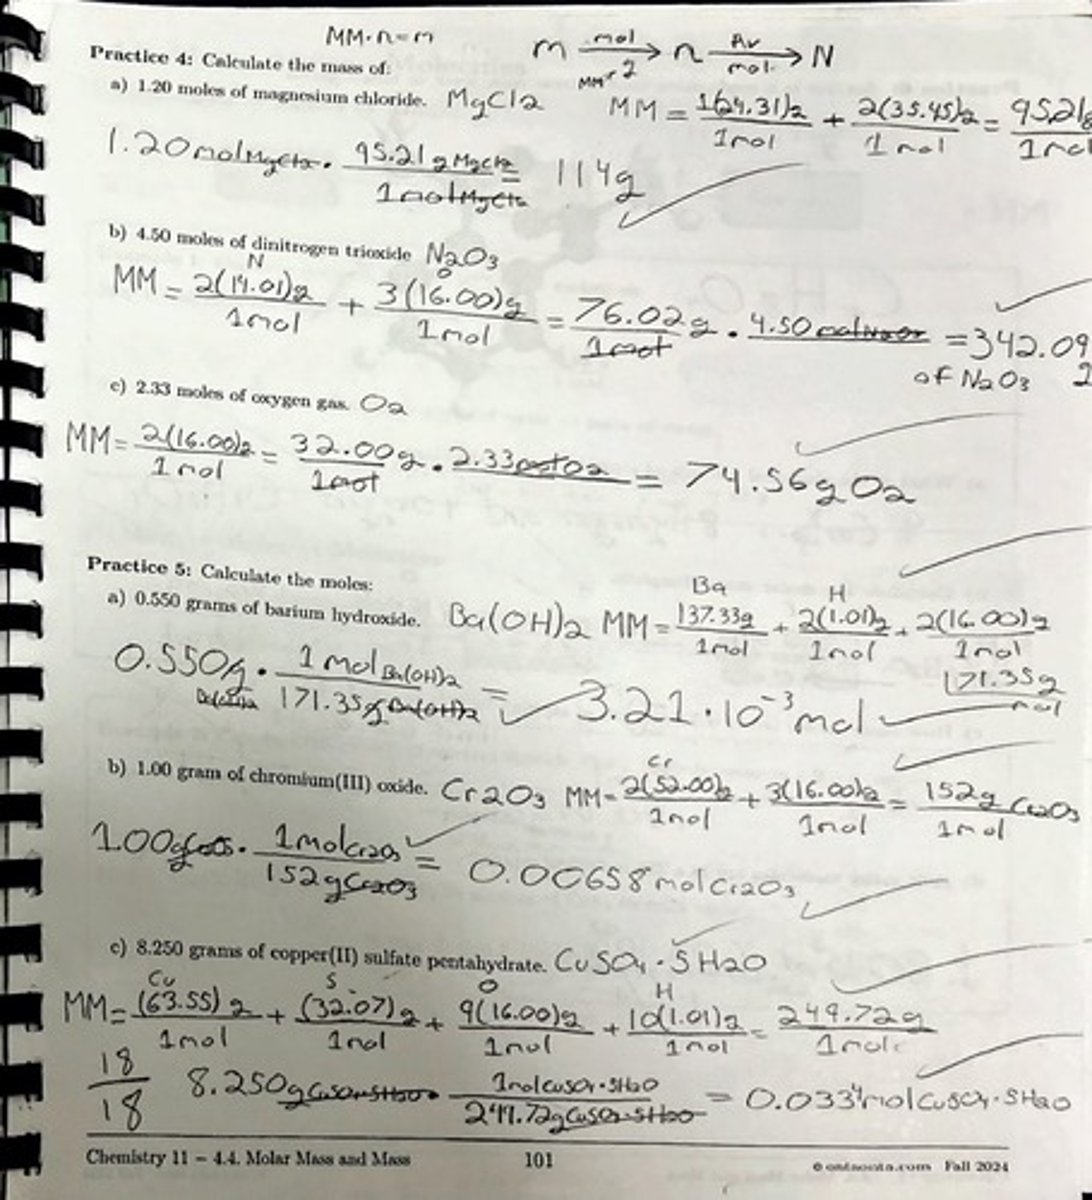 MM·n=m
m mol → n Av → N
MM mol
Practice 4: Calculate the mass of:
a) 1.20 moles of magnesium chloride. MgCl2 MM = 1(24.31)g / 1mol + 2(35.45)g / 1mol = 95.21g / 1mol
1.20 mol MgCl2 · 95.21 g MgCl2 / 1 mol MgCl2 = 114g
b) 4.50 moles of dinitrogen trioxide N2O3
N O
MM = 2(14.01)g / 1mol + 3(16.00)g / 1mol = 76.02g / 1mol · 4.50 mol N2O3 = 342.09
of N2O3
c) 2.33 moles of oxygen gas. O2
MM = 2(16.00)g / 1mol = 32.00g / 1mol · 2.33 mol O2 = 74.56g O2
Practice 5: Calculate the moles:
Ba H
a) 0.550 grams of barium hydroxide. Ba(OH)2 MM = 137.33g / 1mol + 2(1.01)g / 1mol + 2(16.00)g / 1mol
171.35g / mol
0.550g Ba(OH)2 · 1mol Ba(OH)2 / 171.35g Ba(OH)2 = 3.21·10⁻³ mol
Cr
b) 1.00 gram of chromium(III) oxide. Cr2O3 MM = 2(52.00)g / 1mol + 3(16.00)g / 1mol = 152g Cr2O3 / 1mol
1.00g · 1mol Cr2O3 / 152g Cr2O3 = 0.00658 mol Cr2O3
c) 8.250 grams of copper(II) sulfate pentahydrate. CuSO4·5H2O
Cu S O H
MM = (63.55)g / 1mol + (32.07)g / 1mol + 9(16.00)g / 1mol + 10(1.01)g / 1mol = 249.72g / 1mol
18/18 8.250g CuSO4·5H2O · 1mol CuSO4·5H2O / 249.72g CuSO4·5H2O = 0.033 mol CuSO4·5H2O
Chemistry 11 – 4.4. Molar Mass and Mass 101 Fall 2024